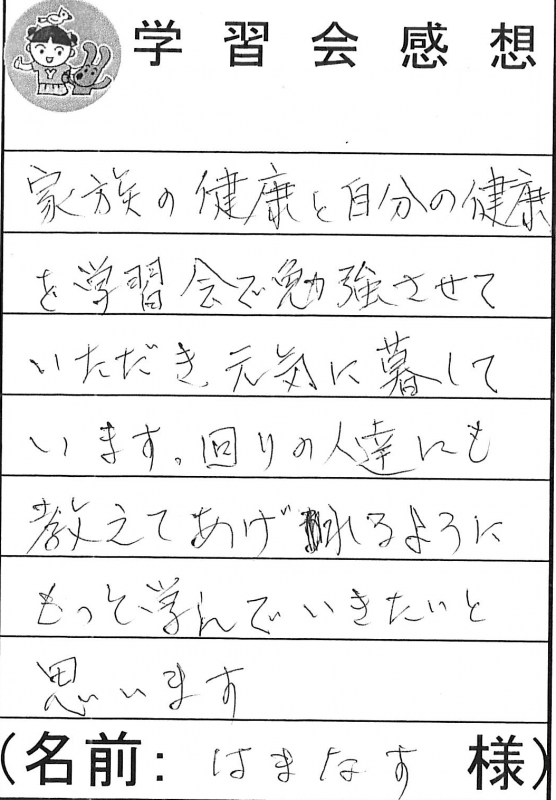 学習会感想
家族の健康と自分の健康
を学習会で勉強させて
いただき、元気に暮して
います。回りの人達にも
教えてあげれるように
もっと学んでいきたいと
思います
(名前：はまなす 様)